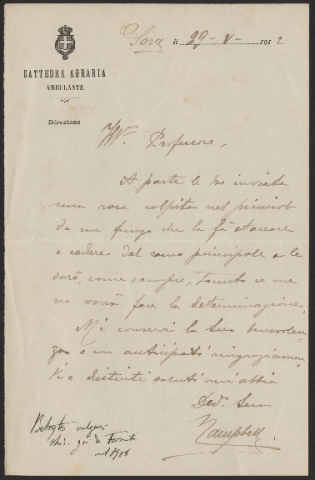 CATTEDRA AGRARIA
AMBULANTE
Direzione
Sora li 29-V-1912
Ill.mo Professore,
A parte le ho inviata
una rosa colpita nel picciolo
da un fungo che la fa staccare
e cadere dal ramo principale e le
sarò, come sempre, tenuto se me
ne vorrà fare la determinazione.
Mi conservi la Sua benevolen-
za e con anticipati ringraziamen-
ti e distinti saluti mi abbia
Dev. Suo
Campbell
Botrytis vulgaris
già
nel 1908